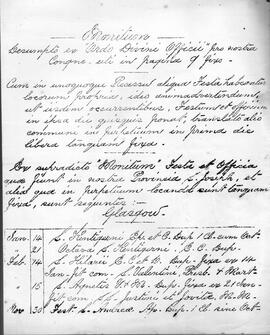 Monitum
Desumptu ex "Ordo Divini Officii" pro nostra
Congne. uti in pagina 9 fixo.
Cum in unoquoque Recessu aliqua Festa habeantur
locorum propria, ideo animadvertendum,
ut iisdem occurrentibus, Festum et officium
in ipsa die quisquis ponat, translato alio
communi in perpetuum in primam diem
libera tanquam fixa.
Ex supradicto "Monitum" Festa et Officia
quae fiunt in nostra Provincia S. Joseph, et
aliqd quae in perpetuum locanda sunt tanquam
fixa, sunt sequentes:-
Glasgow.
Jan. 14 S. Kentigerni Ep. et C. Dup. 1 Cl. cum Oct.
" 21 Octava S. Kentigerni. E. C. Dup.
Feb. 14 S. Hilarii E. C. et D. Dup. fixa ex 14
Jan. fit com. S. Valentini, Presb. & Mart.
" 15 S. Agnetis V. & M. Dup. fixa ex 21 Jan.
fit com. SS. Faustini et Jovitae M. M.
Nov 30 Fest. S. Andreae Ap. Dup. 1 Cl. cum Oct.